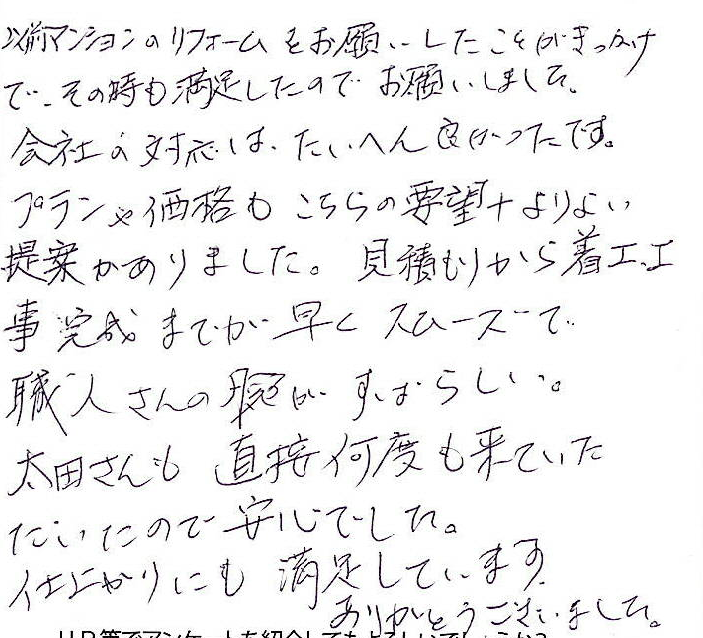 以前マンションのリフォームをお願いしたことがきっかけ
で、その時も満足したのでお願いしました。
会社の対応は、たいへん良かったです。
プランや価格もこちらの要望+よりよい
提案がありました。見積もりから着工、工
事完成までが早くスムーズで
職人さんの腕がすばらしい。
太田さんも直接何度も来ていた
だいたので安心でした。
仕上がりにも満足しています。
ありがとうございました。